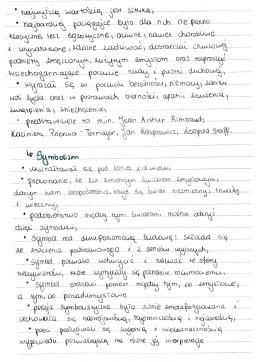 • najwyższą wartością jest sztuka,
• najbardziej pociągające było dla nich nie piękno
klasyczne lecz egzotyczne, dziwne, nawet chorobliwe
i wynaturzone, zdolne zadziwiać, dostarczać chwilowej
podniety znużonym, sytym zmysłom oraz zagłuszyć
wszechogarniające poczucie nudy i pustki duchowej,
• wyrażał się w poczuciu bezsilności, niemocy, zaniku
woli życia oraz w postawach bierności, apatii, znużenia,
zwątpienia, zniechęcenia
• przedstawiciele to m.in. Jean Arthur Rimbaud,
Kazimierz Przerwa-Tetmajer, Jan Kasprowicz, Leopold Staff.
↳ Symbolizm
• ukształtował się pod koniec XIX wieku
• przekonanie, że za zmiennym światem zmysłowym,
danym nam bezpośrednio, kryje się świat niezmienny, trwały
i wieczny
• podobieństwo między tymi światami można odkryć
dzięki symbolom,
• symbol ma dwupoziomową budowę: składa się
ze znaczenia podstawowego i z sensów ukrytych,
• symbol pozwala uchwycić i nazwać te sfery
rzeczywistości, które wymykają się poznaniu rozumowemu,
• symbol stanowi pomost między tym, co zmysłowe,
a tym, co ponadzmysłowe
• poezja symboliczna była silnie zmetaforyzowana i
cechowała się nastrojowością, tajemniczością i niejasnością,
• poeci posługiwali się sugestią i wieloznacznością
wypowiedzi pozwalającą na różne jej interpretacje